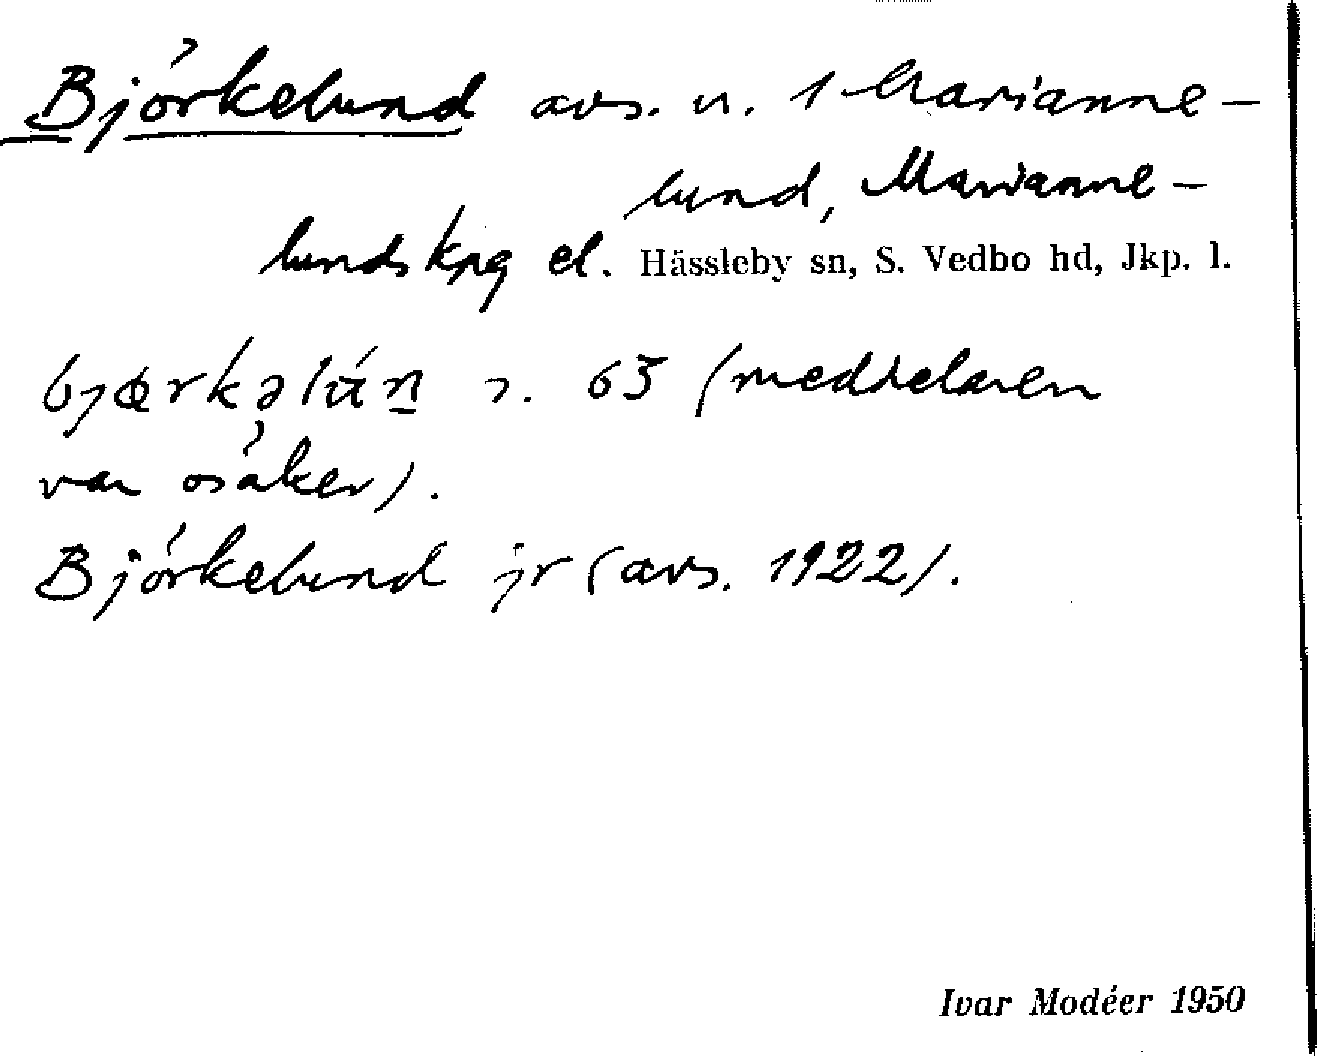 Björkelund avs. u. 1 Marianne-
lund, Marianne-
lunds kpg el. Hässleby sn, S. Vedbo hd, Jkp. l.
bjœrkəlún 63 (meddelaren
var osäker).
Björkelund jr (avs. 1922).
Ivar Modéer 1950